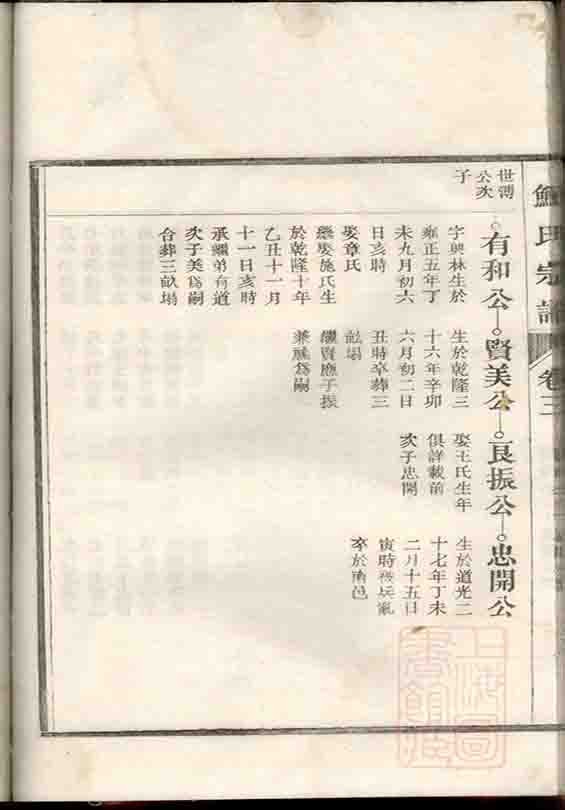 氏宗譜
卷三
世溥
公次
子
有和公
字興林生於
雍正五年丁
未九月初六
日亥時
娶章氏
繼娶施氏生
於乾隆十年
乙丑十一月
十一日亥時
承繼弟有道
次子美爲嗣
合葬三畝塲
賢美公
生於乾隆三
十六年辛卯
六月初二日
丑時卒葬三
畝塲
繼賢應子振
兼祧爲嗣
良振公
娶王氏生年
俱詳載前
次子忠開
忠開公
生於道光二
十七年丁未
二月十五日
寅時被兵亂
卒於南邑
上海圖書館藏